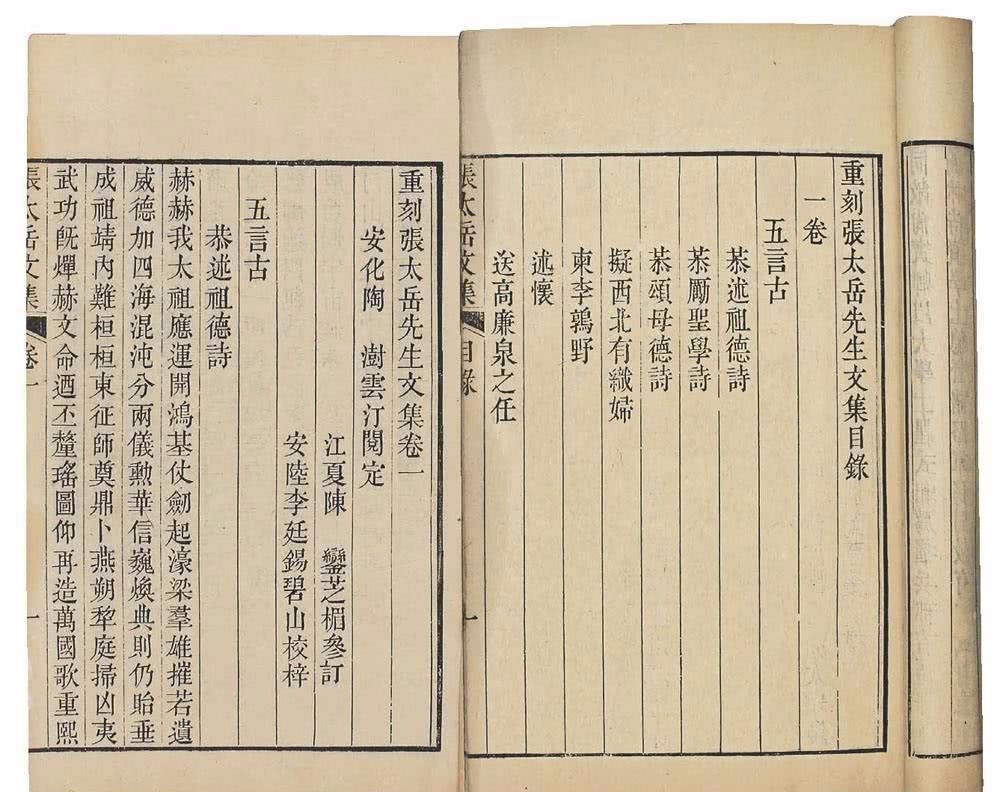 重刻張太岳先生文集目錄
一卷
五言古
恭述祖德詩
恭勵聖學詩
恭頌母德詩
擬西北有織婦
柬李鶚野
述懷
送高廉泉之任
張太岳文集
目錄
一
重刻張太岳先生文集卷一
安化陶 澍雲汀閱定
江夏陳 鑾芝楣參訂
安陸李廷錫碧山校梓
五言古
恭述祖德詩
赫赫我太祖應運開鴻基仗劒起濠梁羣雄摧若遺
威德加四海混沌分兩儀勲華信巍煥典則仍貽垂
成祖靖內難桓桓東征師奠鼎卜燕朔犂庭掃凶夷
武功旣燀赫文命迺丕釐瑤圖仰再造萬國歌重熙
張太岳文集
卷一
一